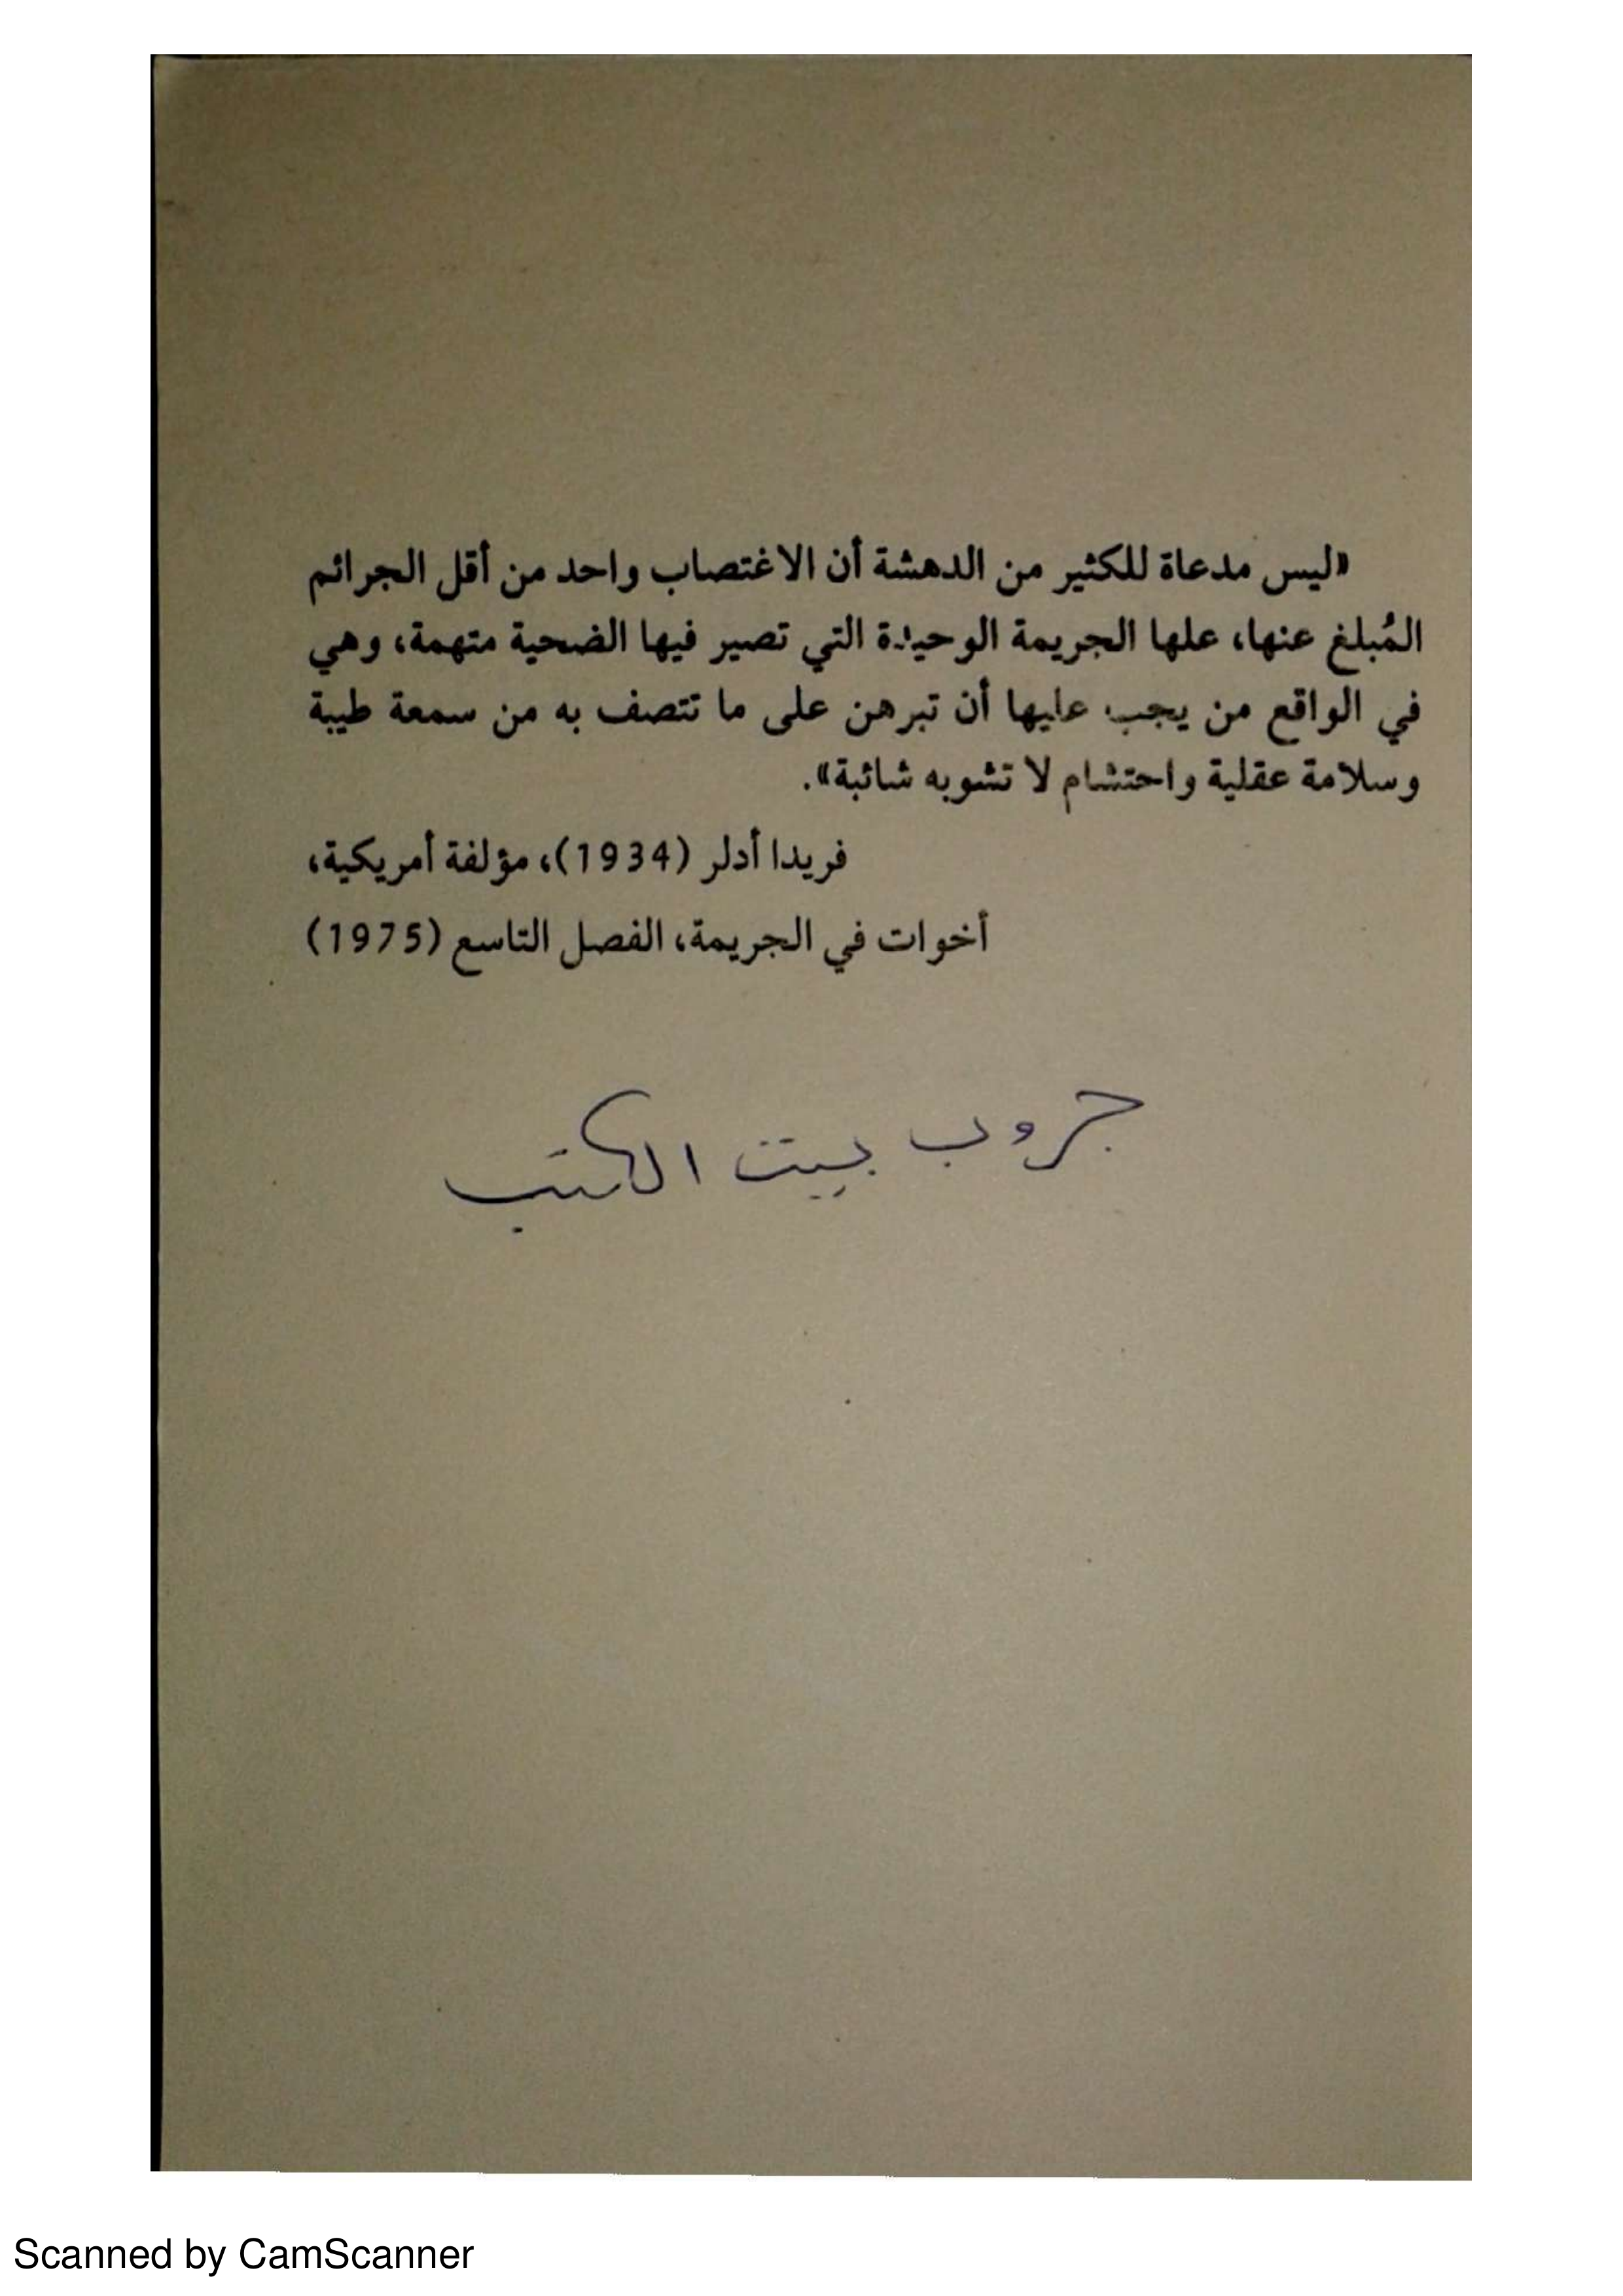 «ليس مدعاة للكثير من الدهشة أن الاغتصاب واحد من أقل الجرائم
المُبلغ عنها، علها الجريمة الوحيدة التي تصير فيها الضحية متهمة، وهي
في الواقع من يجب عليها أن تبرهن على ما تتصف به من سمعة طيبة
وسلامة عقلية واحتشام لا تشوبه شائبة».
فريدا أدلر (1934)، مؤلفة أمريكية،
أخوات في الجريمة، الفصل التاسع (1975)
جروب بيت الكتب
Scanned by CamScanner